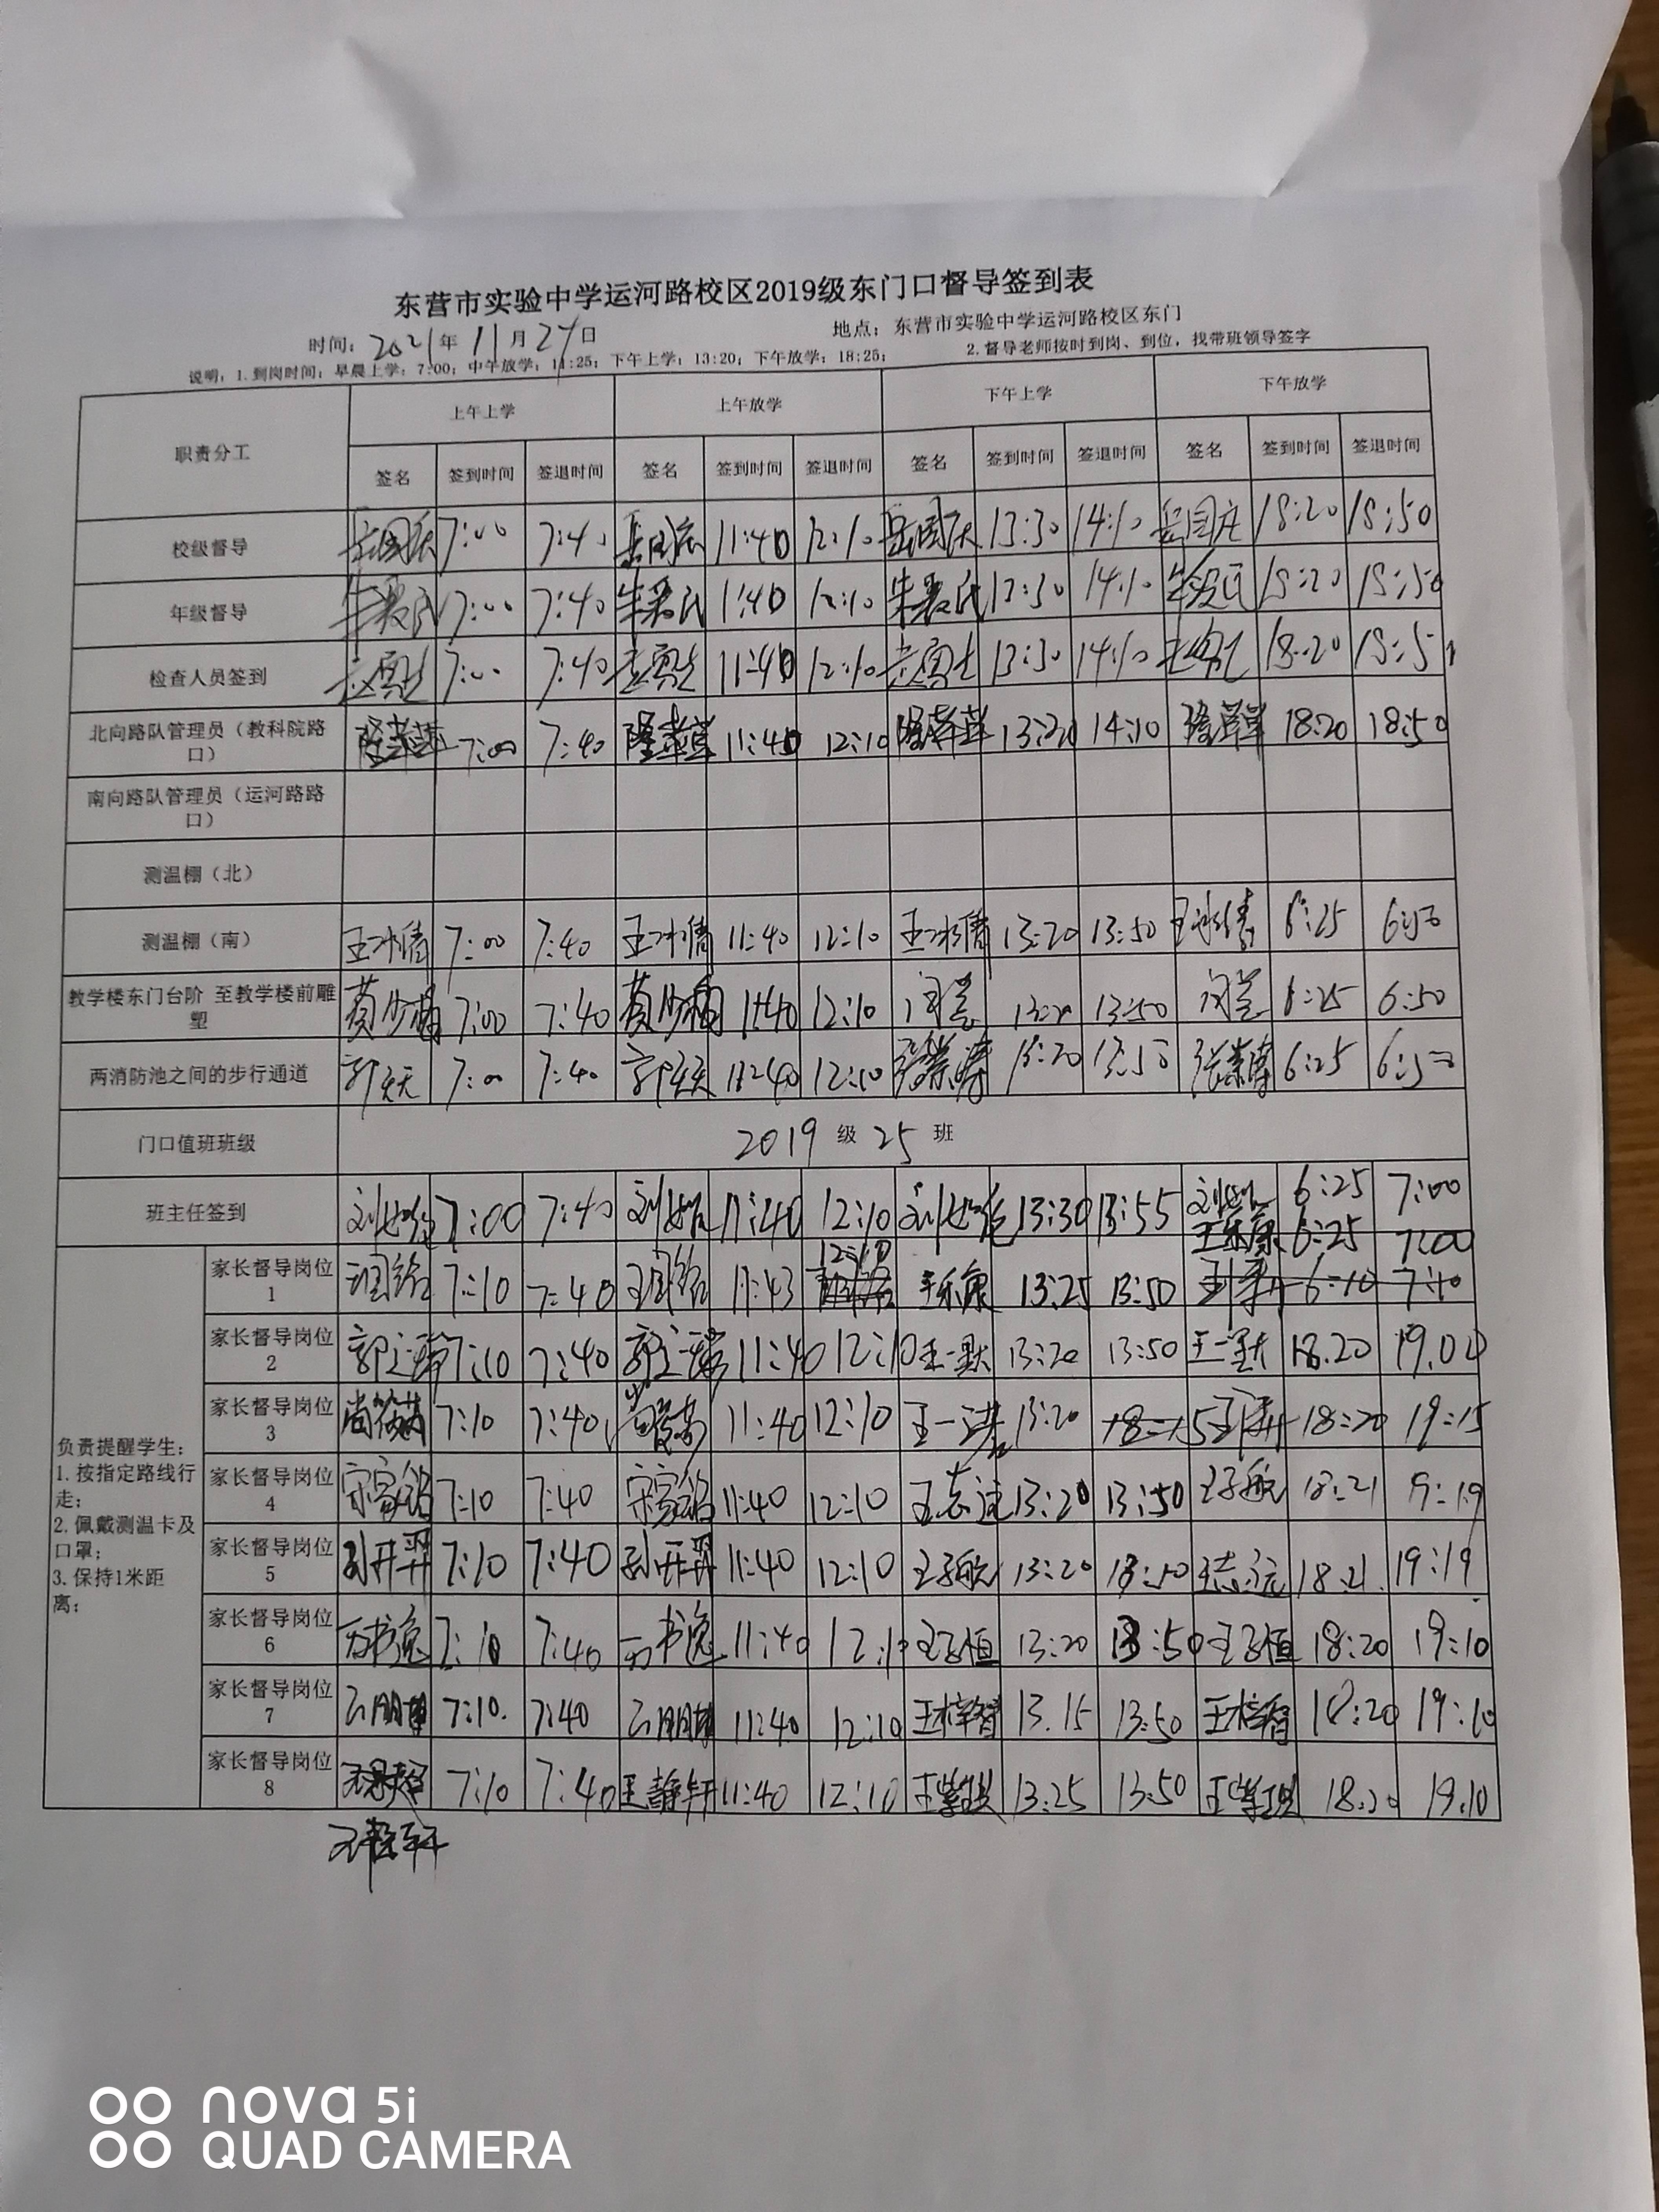 东营市实验中学运河路校区2019级东门口督导签到表
时间：2021年11月2 日 地点：东营市实验中学运河路校区东门
说明：1.到岗时间：早晨上学：7:00；中午放学：11:25；下午上学：13:20；下午放学：18:25； 2.督导老师按时到岗、到位，找带班领导签字
职责分工 上午上学 上午放学 下午上学 下午放学
签名 签到时间 签退时间 签名 签到时间 签退时间 签名 签到时间 签退时间 签名 签到时间 签退时间
校级督导 岳国庆 7:00 7:40 岳国庆 11:40 12:10 岳国庆 13:30 14:10 岳国庆 18:20 18:50
年级督导 7:00 7:40 11:40 12:10 13:30 14:10 18:20 18:50
检查人员签到 7:00 7:40 11:40 12:10 13:30 14:10 18:20
北向路队管理员（教科院路口） 7:00 7:40 11:40 12:10 14:10 18:20 18:50
南向路队管理员（运河路路口）
测温棚（北）
测温棚（南） 王冰倩 7:00 7:40 王冰倩 11:40 12:10 王冰倩 13:20 13:50 王冰倩 6:25 6:50
教学楼东门台阶 至教学楼前雕塑 7:00 7:40 11:40 12:10 13:20 13:50 6:25 6:50
两消防池之间的步行通道 郭天天 7:00 7:40 郭天天 12:10 13:50 6:25 6:50
门口值班班级 2019 级 25 班
班主任签到 7:00 7:40 11:40 12:10 13:30 13:55 6:25 7:00
王乐康 6:25 7:00
负责提醒学生：
1. 按指定路线行走；
2. 佩戴测温卡及口罩；
3. 保持1米距离；
家长督导岗位1 7:10 7:40 11:43 12:10 王乐康 13:25 13:50 6:10 7:10
家长督导岗位2 7:10 7:40 11:40 12:10 王一默 13:20 13:50 王一默 18.20 19.00
家长督导岗位3 7:10 7:40 11:40 12:10 13:20 18:20 19:15
家长督导岗位4 宋家铭 7:10 7:40 宋家铭 11:40 12:10 王志远 13:20 13:50 王子航 18:21 19:19
家长督导岗位5 孙开羿 7:10 7:40 孙开羿 11:40 12:10 王子航 13:20 13:50 王志远 18:21 19:19
家长督导岗位6 万书逸 7:10 7:40 万书逸 11:40 12:10 王子恒 13:20 13:50 王子恒 18:20 19:10
家长督导岗位7 7:10 7:40 11:40 12:10 王梓智 13.15 13:50 王梓智 18:20 19:10
家长督导岗位8 7:10 7:40 王静轩 11:40 12:10 13:25 13:50 18:20 19.10
nova 5i
QUAD CAMERA